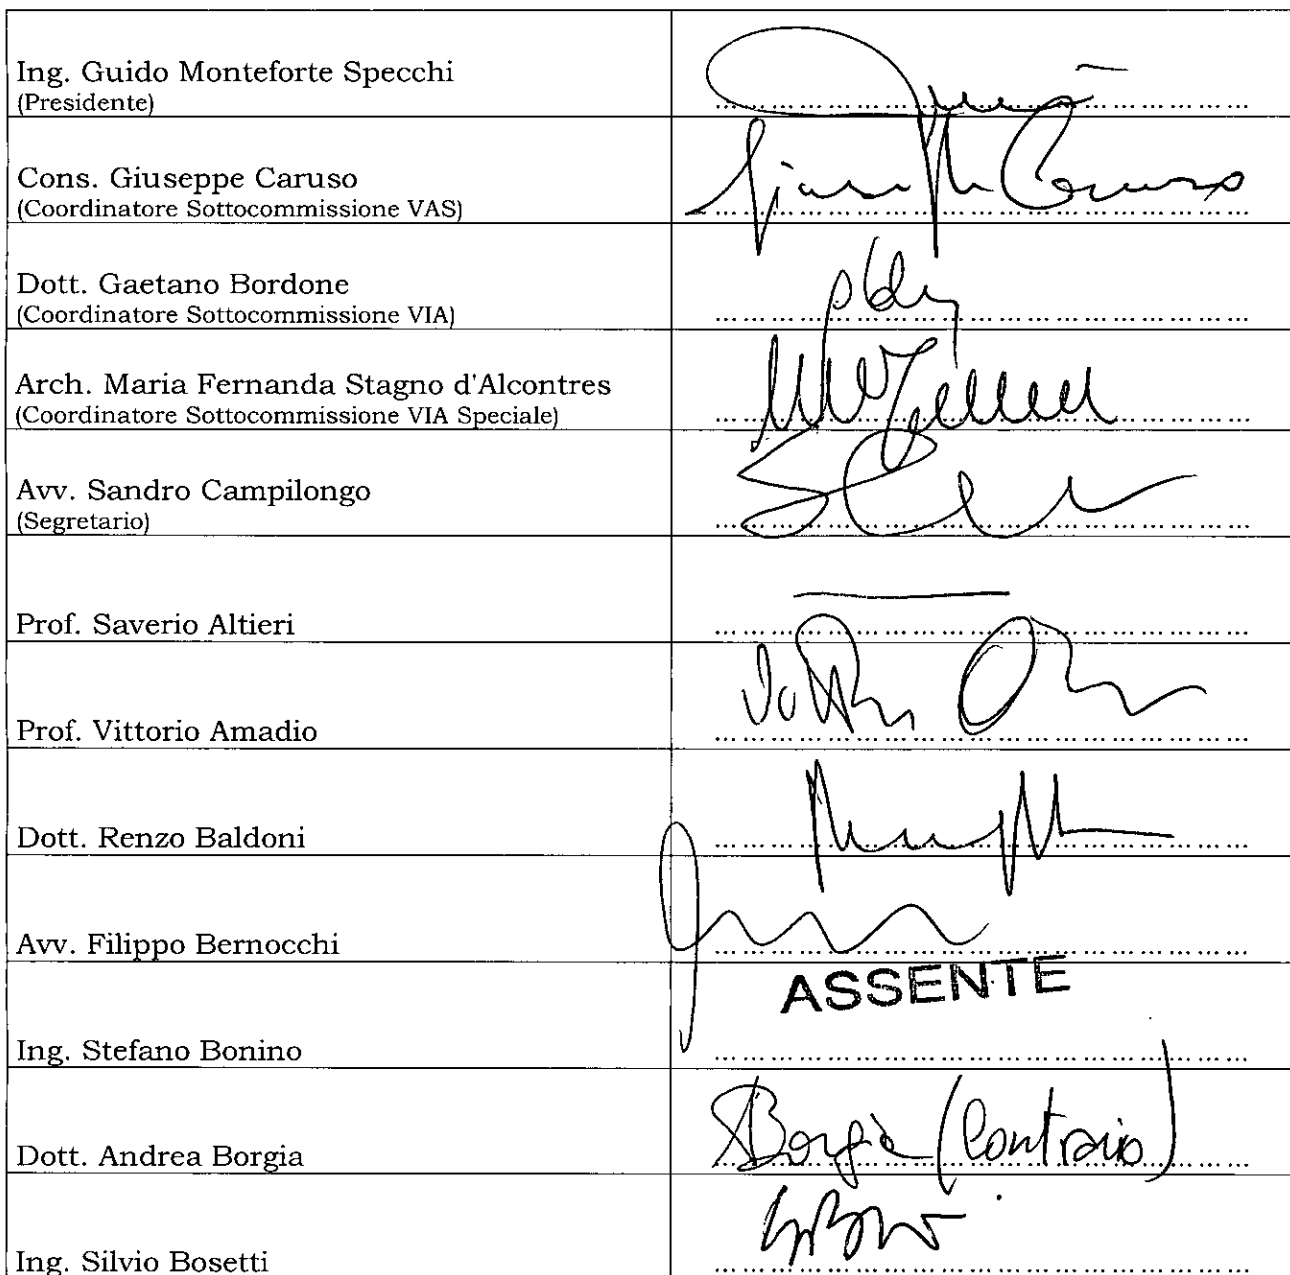 Ing. Guido Monteforte Specchi
(Presidente)
Cons. Giuseppe Caruso
(Coordinatore Sottocommissione VAS)
Giuseppe Caruso
Dott. Gaetano Bordone
(Coordinatore Sottocommissione VIA)
Arch. Maria Fernanda Stagno d'Alcontres
(Coordinatore Sottocommissione VIA Speciale)
Avv. Sandro Campilongo
(Segretario)
Prof. Saverio Altieri
Prof. Vittorio Amadio
Dott. Renzo Baldoni
Avv. Filippo Bernocchi
ASSENTE
Ing. Stefano Bonino
Dott. Andrea Borgia
Borgia (Contrario)
Ing. Silvio Bosetti